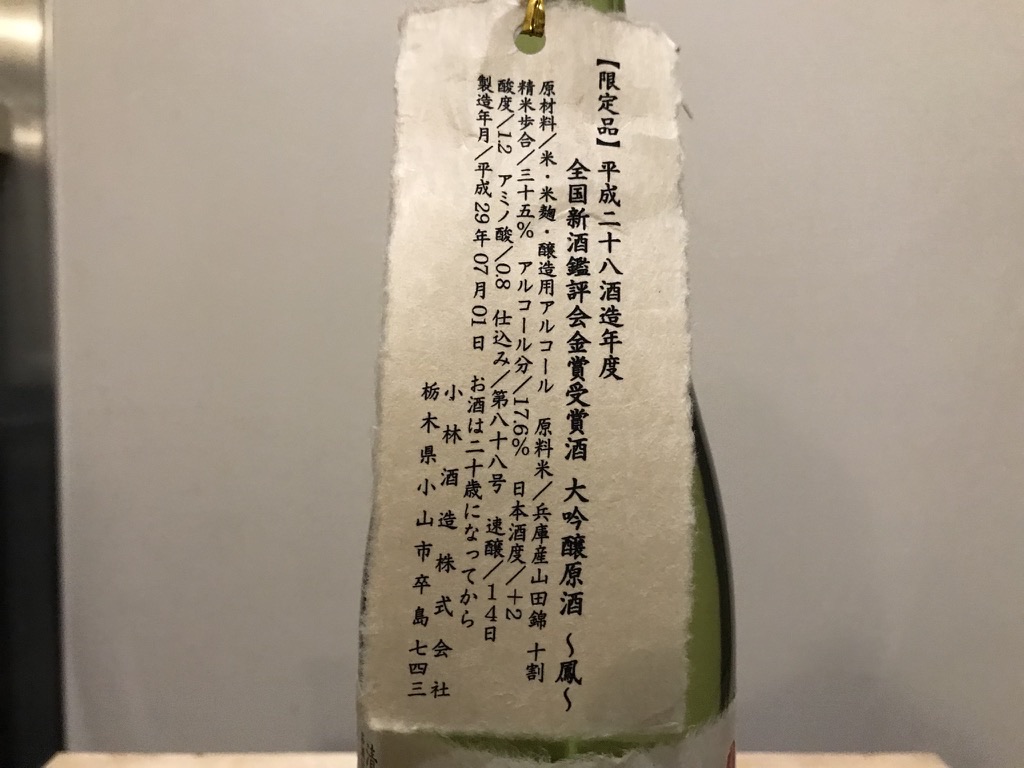 【限定品】平成二十八酒造年度
全国新酒鑑評会金賞受賞酒 大吟醸原酒 〜鳳〜
原材料／米・米麹・醸造用アルコール 原料米／兵庫産山田錦 十割
精米歩合／三十五% アルコール分／17.6% 日本酒度／+2
酸度／1.2 アミノ酸／0.8 仕込み／第八十八号 速醸／14日
製造年月／平成29年07月01日 お酒は二十歳になってから
小林酒造株式会社
栃木県小山市卒島七四三